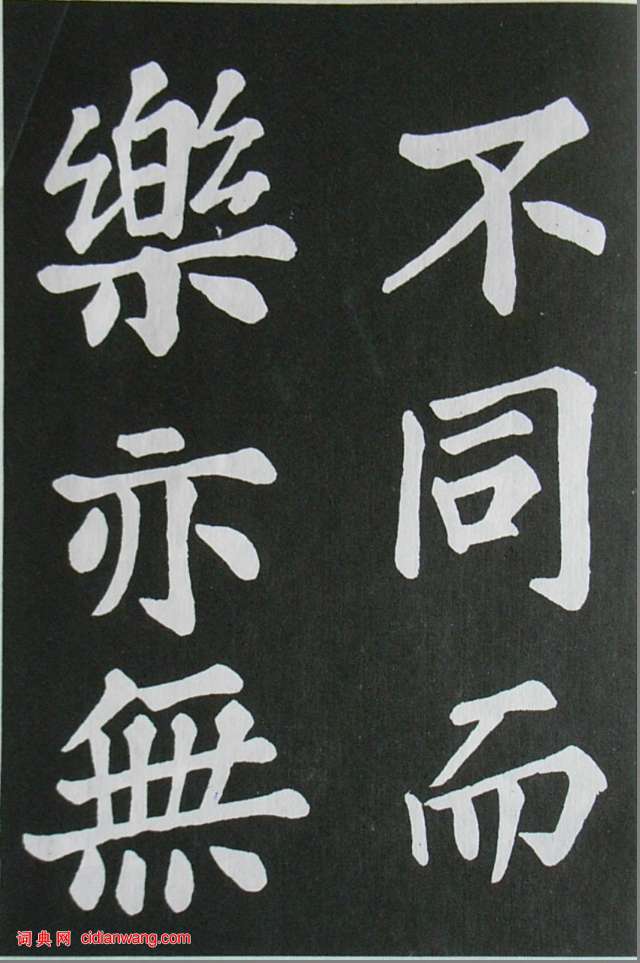 不同而
樂亦無
词典网 cidianwang.com